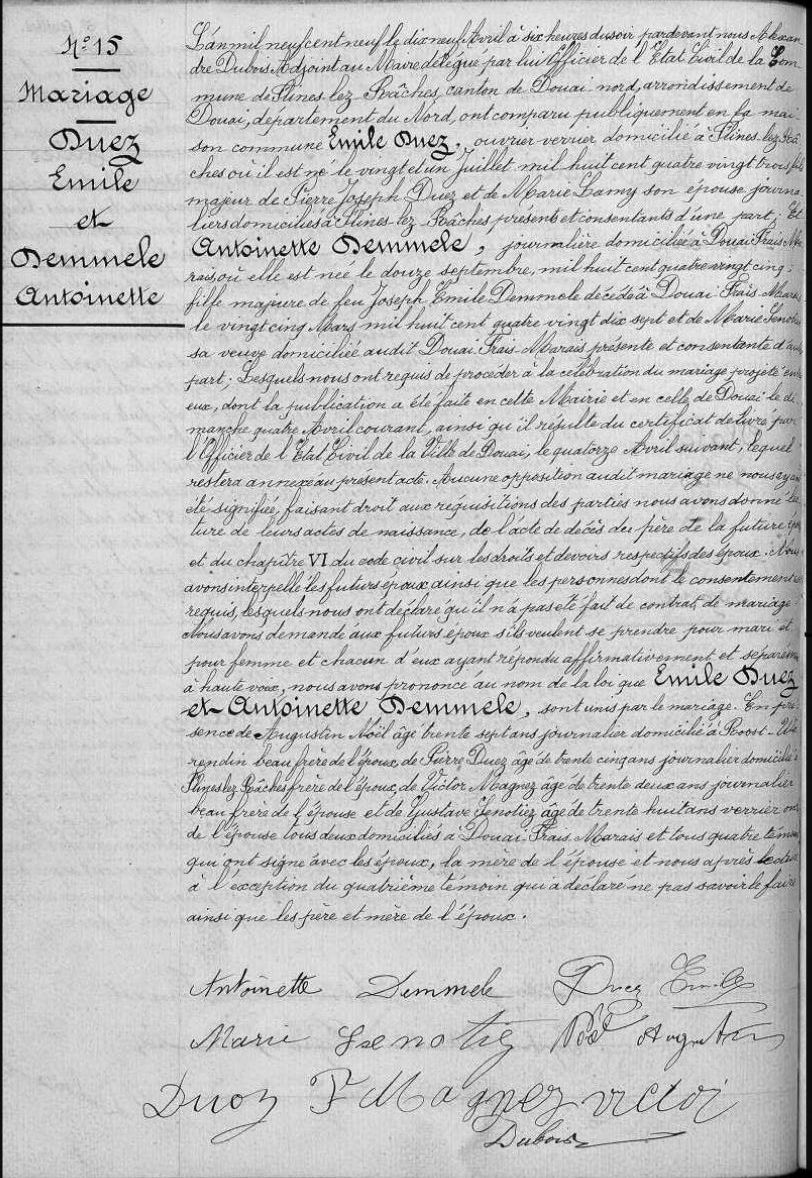 N° 15
Mariage
Duez
Emile
et
Demmele
Antoinette
L'an mil neuf cent neuf le dix neuf Avril à six heures du soir, par devant nous Alexan
dre Dubois Adjoint au Maire délégué par lui Officier de l'Etat Civil de la Com
mune de Flines-lez-Râches, canton de Douai nord, arrondissement de
Douai, département du Nord, ont comparu publiquement en la mai
son commune Emile Duez, ouvrier verrier domicilié à Flines-lez-Râ
ches où il est né le vingt et un Juillet mil huit cent quatre vingt trois, fils
majeur de Pierre Joseph Duez et de Marie Lamy son épouse, journa
liers domiciliés à Flines-lez-Râches, présents et consentants d'une part; Et
Antoinette Demmele, journalière domiciliée à Douai Frais Ma
rais, où elle est née le douze septembre, mil huit cent quatre vingt cinq;
fille majeure de feu Joseph Emile Demmele décédé à Douai Frais Marais
le vingt cinq Mars mil huit cent quatre vingt dix sept et de Marie Senotiez
sa veuve domiciliée audit Douai Frais Marais présente et consentante d'autre
part; Lesquels nous ont requis de procéder à la célébration du mariage projeté entre
eux, dont la publication a été faite en cette Mairie et en celle de Douai le di
manche quatre Avril courant, ainsi qu'il résulte du certificat délivré par
l'Officier de l'Etat Civil de la Ville de Douai, le quatorze Avril suivant, lequel
restera annexé au présent acte. Aucune opposition audit mariage ne nous ayant
été signifiée, faisant droit aux réquisitions des parties nous avons donné lec
ture de leurs actes de naissance, de l'acte de décès du père de la future
et du chapître VI du code civil sur les droits et devoirs respectifs des époux. Nous
avons interpellé les futurs époux ainsi que les personnes dont le consentement est
requis, lesquels nous ont déclaré qu'il n'a pas été fait de contrat de mariage.
Nous avons demandé aux futurs époux s'ils veulent se prendre pour mari et
pour femme et chacun d'eux ayant répondu affirmativement et séparément
à haute voix, nous avons prononcé au nom de la loi que Emile Duez
et Antoinette Demmele, sont unis par le mariage. En pré
sence de Augustin Noël âgé trente sept ans journalier domicilié à Roost-Wa
rendin beau frère de l'époux, de Pierre Duez âgé de trente cinq ans journalier domicilié à
Flines lez Râches frère de l'époux, de Victor Magnez âgé de trente deux ans journalier
beau frère de l'épouse et de Gustave Senotiez âgé de trente huit ans verrier oncle
de l'épouse tous deux domiciliés à Douai Frais Marais et tous quatre témoins
qui ont signé avec les époux, la mère de l'épouse et nous après lecture
à l'exception du quatrième témoin qui a déclaré ne pas savoir le faire
ainsi que les père et mère de l'époux.
Antoinette Demmele Duez Emile
Marie Senotiez Noël Augustin
Duez P Magnez victor
Dubois